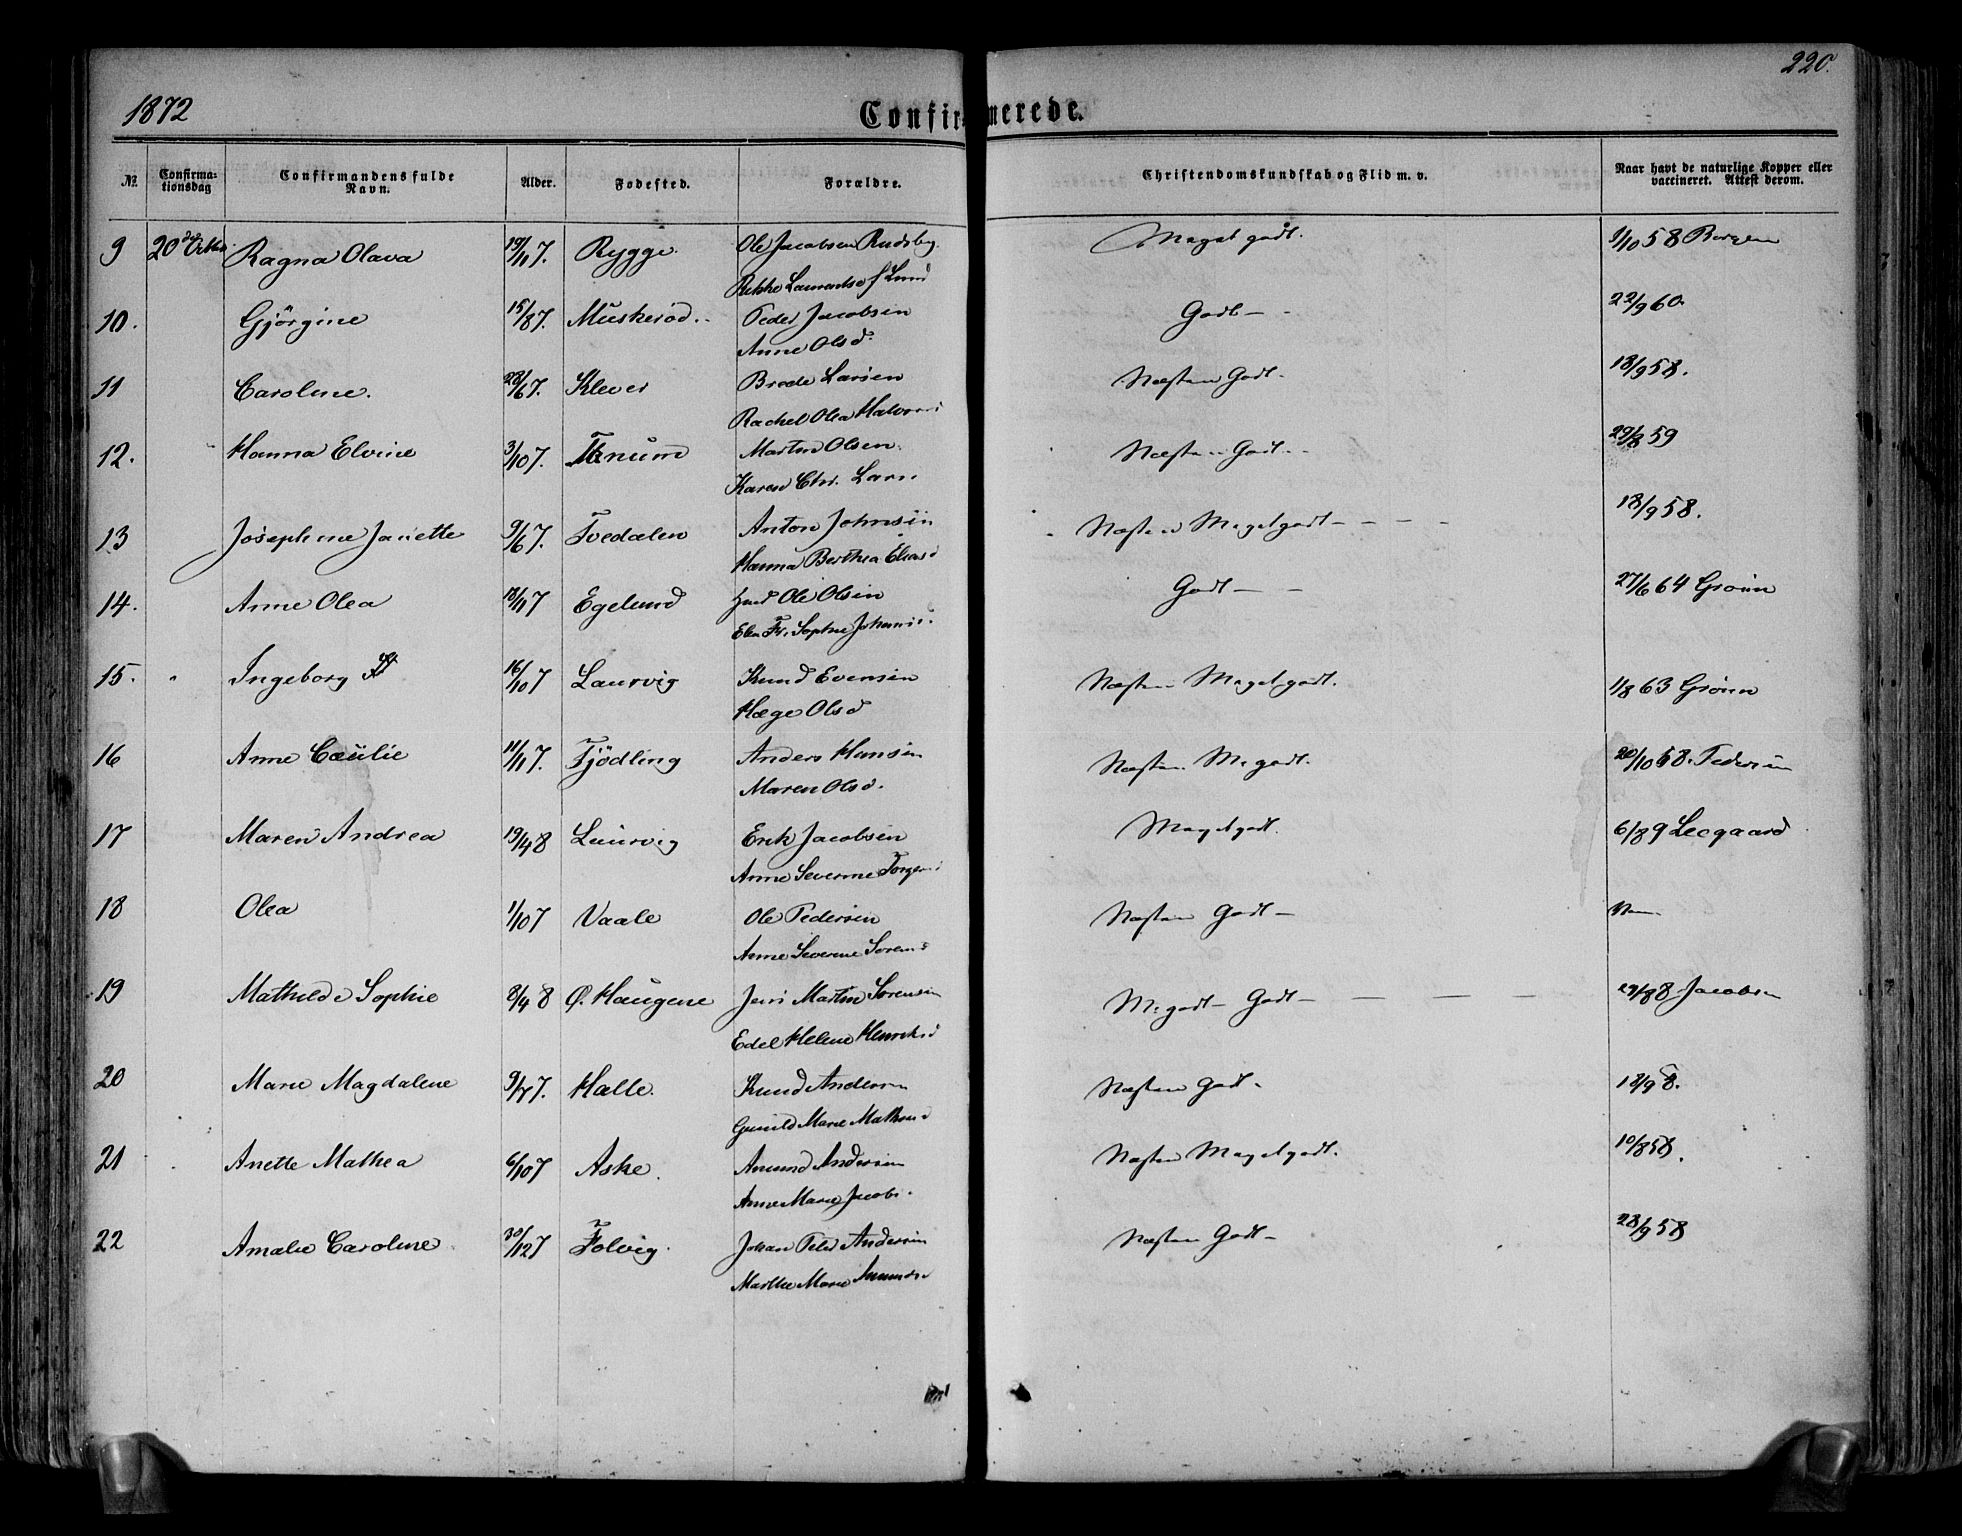 1872
220.
Confirmerede.
№ Confirmationsdag Confirmandens fulde Navn. Alder. Fødested. Forældre. Christendomskundskab og Flid m. v. Naar havt de naturlige Kopper eller vaccineret. Attest derom.
9 20de Octbr. Ragna Olava 19/11 7. Rygge. Ole Jacobsen Rudsbg. Meget godt. 1/10 58 Borgen
Rikke Laurents f Lund
10. Gjörgine 15/8 7. Muskeröd Peder Jacobsen Godt 22/9 60.
Anne Olsd.
11 Caroline. 28/6 7. Klever Brede Larsen Næsten Godt. 18/9 58.
Rachel Olea Halvors
12. Hanna Elvine 3/10 7. Tanum Martin Olsen Næsten Godt 29/8 59
Karen Chr. Lars
13 Josephine Janette 9/6 7. Tvedalen Anton Johnsen Næsten Meget godt 18/9 58.
Hanna Berthea Eliasd
14. Anne Olea 18/11 7 Egelund Ole Olsen Godt 27/6 64 Grönn
Elen Fr. Sophie Johanns.
15. Ingeborg 16/10 7 Laurvig Knud Evensen Næsten Meget godt. 1/8 63 Grönn
Hæge Olsd
16 Anne Cæcilie 11/11 7. Fjödling Anders Hansen Næsten M. godt. 20/10 58. Pedersen
Maren Olsd.
17 Maren Andrea 19/4 8 Laurvig Erik Jacobsen Meget godt. 6/8 9 Leegaard
Anne Severine Torgers
18 Olea 1/10 7 Vaale Ole Pedersen Næsten Godt
Anne Severine Sorens
19 Mathilde Sophie 8/4 8 Ø. Haugene Jens Martin Sorensen M. godt Godt 29/8 8 Jacobsen
Edel Helene Henriksd
20 Marie Magdalene 9/7 7. Halle. Knud Andersen Næsten Godt 18/9 8.
Gunild Marie Mathisd
21 Anette Mathea 6/10 7 Aske. Amund Andersen Næsten Meget godt. 10/8 58.
Anne Marie Jacobs.
22 Amalie Caroline 30/12 7 Folvig. Johan Peter Andersen Næsten Godt 28/9 58
Marthe Marie Amundsd